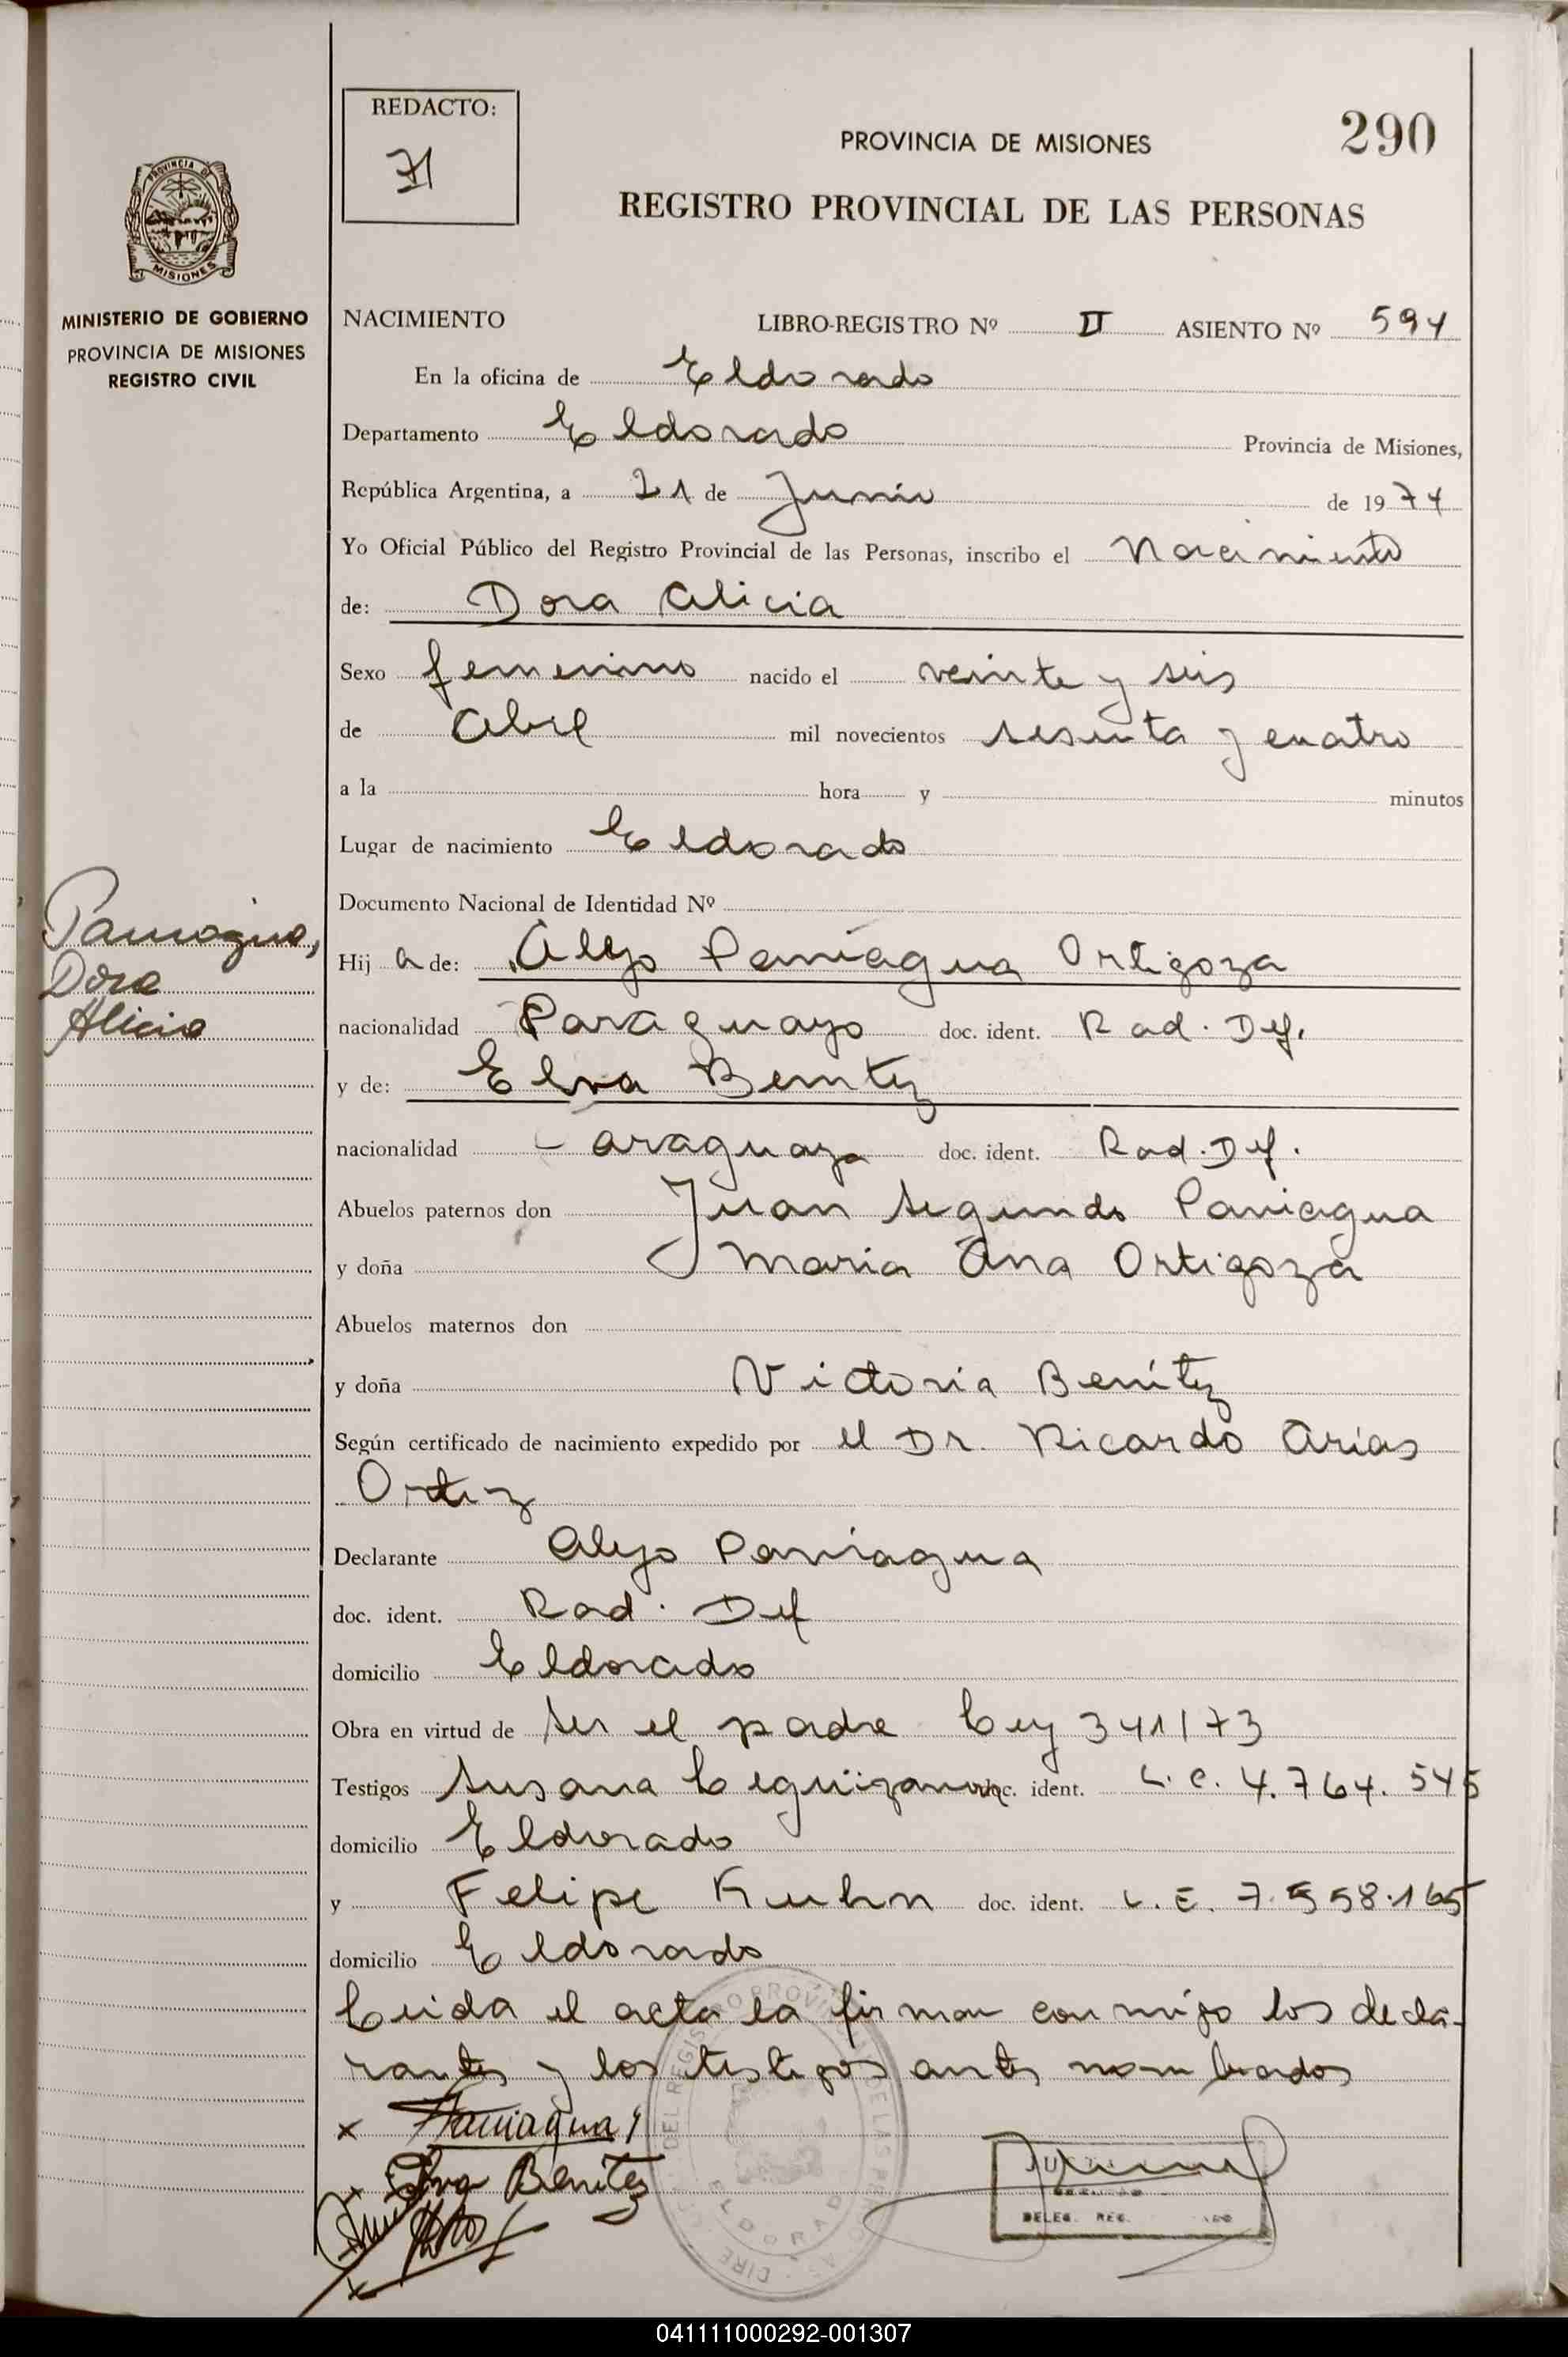 REDACTO:
71
PROVINCIA DE MISIONES
290
REGISTRO PROVINCIAL DE LAS PERSONAS
PROVINCIA DE
MISIONES
MINISTERIO DE GOBIERNO
PROVINCIA DE MISIONES
REGISTRO CIVIL
NACIMIENTO LIBRO-REGISTRO Nº II ASIENTO Nº 594
En la oficina de Eldorado
Departamento Eldorado Provincia de Misiones,
República Argentina, a 21 de Junio de 1974
Yo Oficial Público del Registro Provincial de las Personas, inscribo el Nacimiento
de: Dora Alicia
Sexo femenino nacido el veinte y seis
de Abril mil novecientos sesenta y cuatro
a la hora y minutos
Lugar de nacimiento Eldorado
Documento Nacional de Identidad Nº
Paniagua,
Dora
Alicia
Hija de: Alejo Paniagua Ortigoza
nacionalidad Paraguayo doc. ident. Rad. Def.
y de: Elva Benitez
nacionalidad Paraguaya doc. ident. Rad. Def.
Abuelos paternos don Juan Segundo Paniagua
y doña Maria Ana Ortigoza
Abuelos maternos don
y doña Victoria Benítez
Según certificado de nacimiento expedido por el Dr. Ricardo Arias
Ortiz
Declarante Alejo Paniagua
doc. ident. Rad. Def
domicilio Eldorado
Obra en virtud de ser el padre Ley 341/73
Testigos Susana Leguizamon doc. ident. L.C. 4.764.545
domicilio Eldorado
y Felipe Kuhn doc. ident. L.E. 7.558.165
domicilio Eldorado
Leida el acta la firman conmigo los decla-
rantes y los testigos antes nombrados
x Paniagua
x Elva Benitez
DELEG. REG.
ELDORADO
041111000292-001307